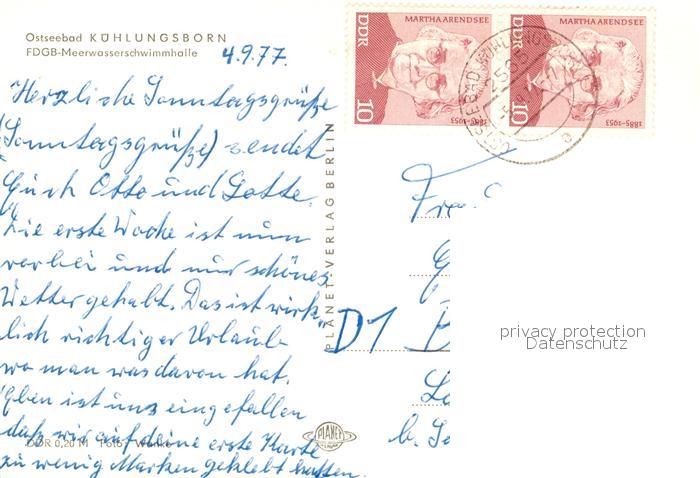 Ostseebad KÜHLUNGSBORN
FDGB-Meerwasserschwimmhalle
4.9.77.
Herzliche Sonntagsgrüße
(Sonntagsgrüße) sendet
Euch Otto und Lotte.
Die erste Woche ist nun
vorbei und nur schönes
Wetter gehabt. Das ist wirk-
lich richtiger Urlaub
wo man was davon hat.
Eben ist uns eingefallen
daß wir auf deine erste Karte
zu wenig Marken geklebt hatten.
DDR 0,20 M
PLANET-VERLAG BERLIN
PLANET
DDR
MARTHA ARENDSEE
10
1885-1953
DDR
MARTHA ARENDSEE
10
1885-1953
OSTSEEBAD KÜHLUNGSBORN
2565
a
D1
b.
privacy protection
Datenschutz